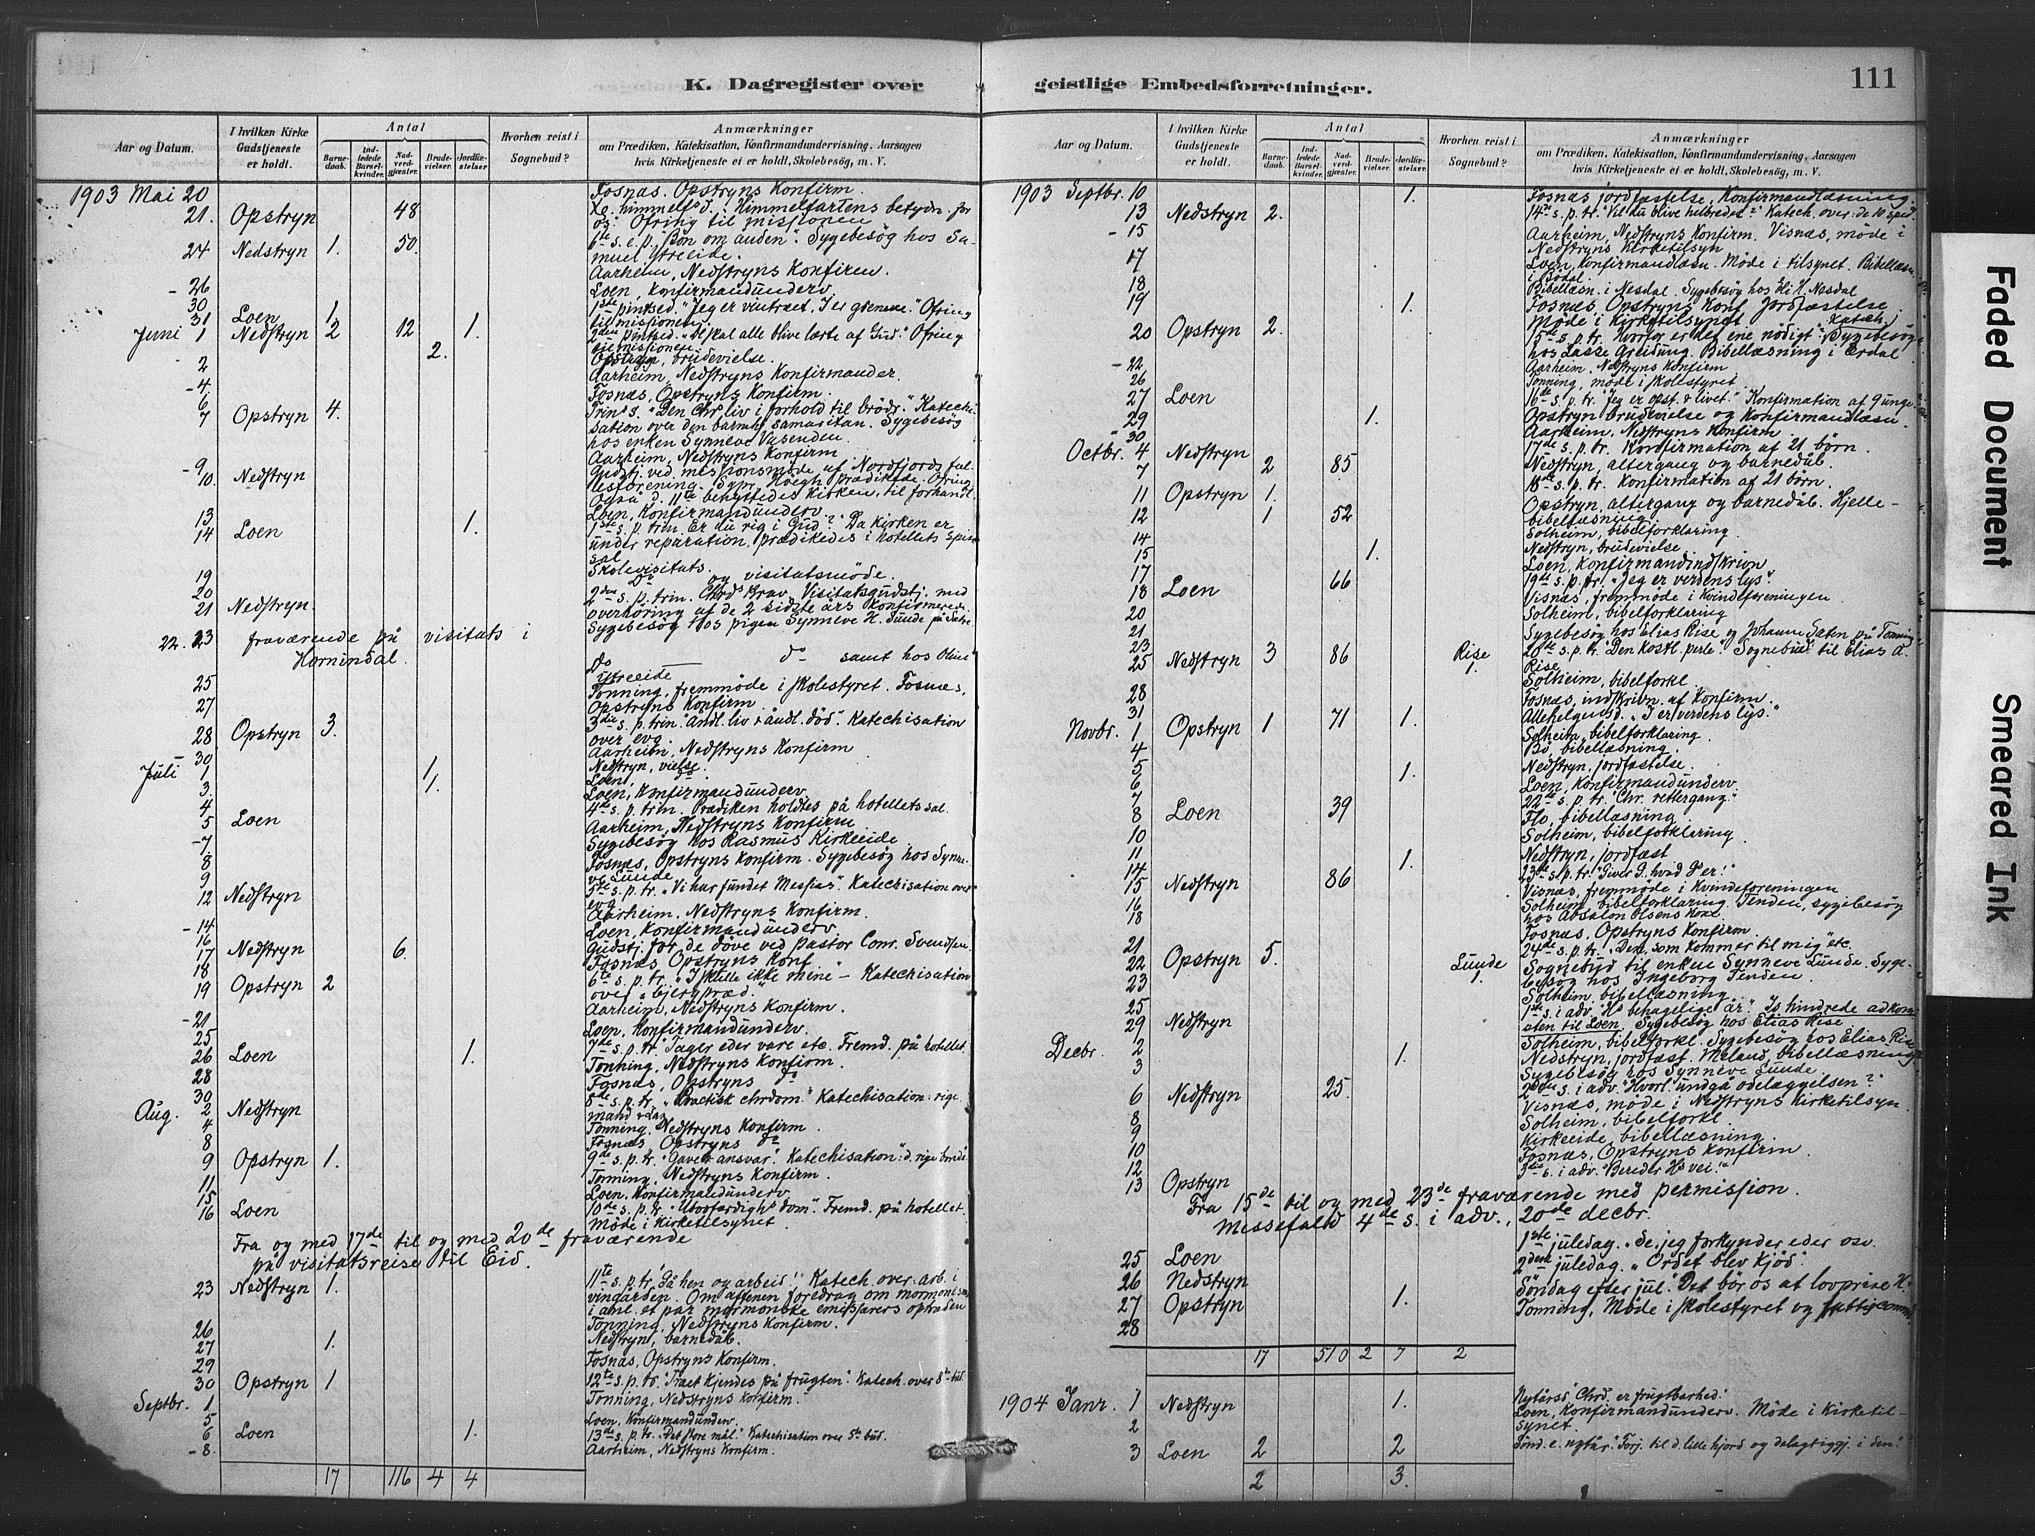 K. Dagregister over
geistlige Embedsforretninger.
111
Aar og Datum.
I hvilken Kirke Gudstjeneste er holdt.
Antal
Barnedaab.
Indledede Barselkvinder.
Nadverdgjæster.
Brudevielser.
Jordfæstelser
Hvorhen reist i Sognebud?
Anmærkninger
om Prædiken, Katekisation, Konfirmandundervisning, Aarsagen
hvis Kirketjeneste ei er holdt, Skolebesøg, m. V.
1903 Mai 20 Fosnæs. Opstryns Konfirm.
21. Opstryn 48 Kr. himmelf. d. "Himmelfartens betydn. for
os". Ofring til missionen
24 Nedstryn 1. 50. 6te s. e. p. "Bøn om anden". Sygebesøg hos Sa-
muel Ytreeide.
- 26 Aarheim, Nedstryns Konfirm.
30 Loen, Konfirmandunderv.
31 Loen 1 1ste pintsed. "Jeg er vintræet, I er grenene." Ofring
til missionen
Juni 1 Nedstryn 2 12 1. 2den pintsed. "De skal alle blive lærte af Gud." Ofring
til missionen.
2 2. Opstryn, brudevielse.
- 4. Aarheim, Nedstryns Konfirmander.
6 Fosnæs, Opstryns Konfirm.
7 Opstryn 4. Trin. s. "Den Chr. liv i forhold til brødr." Katechi-
sation over den barmh. samaritan. Sygebesøg
hos enken Synneve Vasenden.
- 9 Aarheim, Nedstryns Konfirm
10. Nedstryn Gudstj. ved missionsmøde af Nordfjords fæl-
lesforening. Sgpr. Høegh prædikede. Ofring.
Også d. 11te benyttedes kirken, til forhandl.
13 Loen, Konfirmandunderv.
14 Loen 1. 1ste s. p. trin. Er du rig i Gud? Da kirken er
under reparation, prædikedes i hotellets spise-
sal
19 Skolevisitats.
20 Do og visitatsmøde.
21 Nedstryn. 2den s. p. trin. Visitatsgudstj. med
overhøring af de 2 sidste års Konfirmerede.
Sygebesøg hos pigen Synneve H. Sunde på Sætre
22. 23 fraværende på visitats i
Hornindal. Do do samt hos Oline
Ytreeide
25 Tonning, fremmøde i skolestyret. Fosnæs,
27 Opstryns Konfirm
28 Opstryn 3. 3die s. p. trin. "Åndl. liv & åndl. død". Katechisation
over evg.
30 Aarheim, Nedstryns Konfirm
Juli 1 1. Nedstryn, vielse.
3. 1. Loen, do
4 Loen, Konfirmandunderv.
5 Loen 4de s. p. trin. Prædiken holdtes på hotellets sal.
- 7. Aarheim, Nedstryns Konfirm
8 Sygebesøg hos Rasmus Kirkeeide
9 Fosnæs, Opstryns Konfirm. Sygebesøg hos Synne-
ve Sunde
12 Nedstryn 5te s. p. tr. "Vi har fundet Messias". Katechisation over
evg
- 14 Aarheim. Nedstryns Konfirm.
16 Loen, Konfirmandunderv
17 Nedstryn 6. Gudstj. for de døve ved pastor Conr. Svendsen.
18 Fosnæs Opstryns Konf.
19 Opstryn 2 6te s. p. tr. "I skulle ikke mene - Katechisation
over "Bjergpræd."
- 21 Aarheim, Nedstryns Konfirm.
25 Loen, Konfirmandunderv.
26 Loen 1. 7de s. p. tr. Tager eder vare etc. Fremd. på hotellet.
28 Tonning, Nedstryns Konfirm.
30 Fosnæs, Opstryns do
Aug. 2 Nedstryn 8de s. p. tr. "Practisk chrdom." Katechisation: rige
mand & Laz.
4 Tonning, Nedstryns Konfirm.
8 Fosnæs, Opstryns do
9 Opstryn 1. 9de s. p. tr. "Gave & ansvar". Katechisation: d. rige bonde
11 Tonning, Nedstryns Konfirm.
15 Loen, Konfirmandunderv
16 Loen 10de s. p. tr. "Ubodfærdigh. dom". Fremd. på hotellet.
Møde i Kirketilsynet.
Fra og med 17de til og med 20de fraværende
på visitatsreise til Eid.
23 Nedstryn 1. 11te s. p. tr. "Gå hen og arbeid!" Katech. over: arb. i
vingården. Om aftenen foredrag om mormonisme
i anl. et par mormonske emissærers optræden
26 Tonning, Nedstryns Konfirm.
27 1. Nedstryn, barnedåb.
29 Fosnæs, Opstryns Konfirm.
30 Opstryn 1 12te s. p. tr. "Træet kjendes på frugten". Katech. over 8de bud.
Septbr. 1 Tonning, Nedstryns Konfirm.
5 Loen, Konfirmandunderv.
6 Loen 1. 13de s. p. tr. "Det store mål." Katechisation over 5te bud.
- 8. Aarheim, Nedstryns Konfirm.
17 116 4 4
Aar og Datum.
I hvilken Kirke Gudstjeneste er holdt.
Antal
Barnedaab.
Indledede Barselkvinder.
Nadverdgjæster.
Brudevielser.
Jordfæstelser.
Hvorhen reist i Sognebud?
Anmærkninger
om Prædiken, Katekisation, Konfirmandundervisning, Aarsagen
hvis Kirketjeneste ei er holdt, Skolebesøg, m. V.
1903 Septbr. 10 1. Fosnæs jordfæstelse, Konfirmandlæsning.
13 Nedstryn 2. 14de s. p. tr. "Vil du blive helbredet?" Katech. over: de 10 sped.
- 15 Aarheim, Nedstryns Konfirm. Visnæs, møde i
Nedstryns Kirketilsyn
17 Loen, Konfirmandlæsn. Møde i tilsynet. Bibellæsn.
i Bødal
18 Bibellæsn. i Nesdal. Sygebesøg hos Nesdal
19 1. Fosnæs Opstryns Konf. Jordfæstelse.
Møde i Kirketilsynet. Katech,
20 Opstryn 2. 15de s. p. tr. "Hvorfor er det ene nødigt". Sygebesøg
hos Lasse Greidung. Bibellæsning i Erdal
- 22 Aarheim, Nedstryns Konfirm
26 Tonning, møde i skolestyret.
27 Loen 16de s. p. tr. "Jeg er opst. & livet." Konfirmation af 9 unge.
29 1. Opstryn brudevielse og konfirmandlæsn.
- 30 Aarheim, Nedstryns Konfirm
Octbr. 4 Nedstryn 17de s. p. tr. Konfirmation af 21 børn.
7 2 85 Nedstryn, altergang og barnedåb.
11 Opstryn 1. 18de s. p. tr. Konfirmation af 21 børn.
12 1 52 Opstryn, altergang og barnedåb. Hjelle-
bibellæsning
14 Solheim, bibelforklaring.
15 1. Nedstryn, brudevielse
17 Loen, Konfirmandindskrivn
18 Loen 66 19de s. p. tr. "Jeg er verdens lys".
20 Visnæs, fremmøde i Kvindeforeningen.
21 Solheim, bibelforklaring
23 Sygebesøg hos Elias Rise og Johanne Sæten på Tonning
25 Nedstryn 3 86 Rise 1. 20de s. p. tr. "Den kostl. perle". Sognebud til Elias A.
Rise
28 Solheim, bibelforkl.
31 Fosnæs, indskrivn. af Konfirm.
Novbr. 1 Opstryn 1 71 1. Allehelgensd. "I er verdens lys."
4 Solheim, bibelforklaring.
5 Bø, bibellæsning.
6 1. Nedstryn, jordfæstelse.
7 Loen, Konfirmandunderv.
8 Loen 39 22de s. p. tr. "Chr. rettergang."
Flo, bibellæsning
10 Solheim, bibelforklaring.
11 1. Nedstryn, jordfæst
14
15 Nedstryn 86 23de s. p. tr. "Giver G. hvad G's er."
16 Visnæs, fremmøde i Kvindeforeningen
18 Solheim, bibelforklaring. Tenden, sygebesøg
hos Absalon Olsens Kone
21 Fosnæs, Opstryns Konfirm
22 Opstryn 5. 24de s. p. tr. "Den, som kommer til mig" etc.
23 Lunde 1. Sognebud til enken Synneve Lunde. Syge-
besøg hos Ingeborg Tenden
25 Solheim, bibellæsning
29 Nedstryn 1ste s. i adv. "Hs behagelige år." Is hindrede adkom-
sten til Loen. Sygebesøg hos Elias Rise
Decbr. 2 Solheim, bibelforkl. Sygebesøg hos Elias Rise
3 1. Nedstryn, jordfæst. Meland, bibellæsning
Sygebesøg hos Synneve Lunde.
6 Nedstryn 25. 2den s. i adv. "Hvorl. undgå ødelæggelsen?"
8 Visnæs, møde i Nedstryns Kirketilsyn.
9 Solheim, bibelforkl.
10 Kirkeeide, bibellæsning.
12 Fosnæs, Opstryns Konfirm.
13 Opstryn 3die s. i adv. "Bereder Hs vei!"
Fra 15de til og med 23de fraværende med permission.
Messefald 4de s. i adv., 20de decbr.
25 Loen 1ste juledag. "Se, jeg forkynder eder osv.
26 Nedstryn 2den juledag. "Ordet blev Kjød".
27 Opstryn 1. Søndag efter jul. "Det bør os at lovprise H."
28 Tonning, Møde i skolestyret og fattigcomm.
17 510 2 7 2
1904 Janr. 1 Nedstryn 1. Nytårsd. "Chrd. er frugtbarhed."
2 Loen, Konfirmandunderv. Møde i Kirketil-
synet.
3 Loen 2 2 Sønd. e. nytår. "Forj. til d. lille hjord og delagtiggj. i den."
2 3.
Faded Document
Smeared Ink